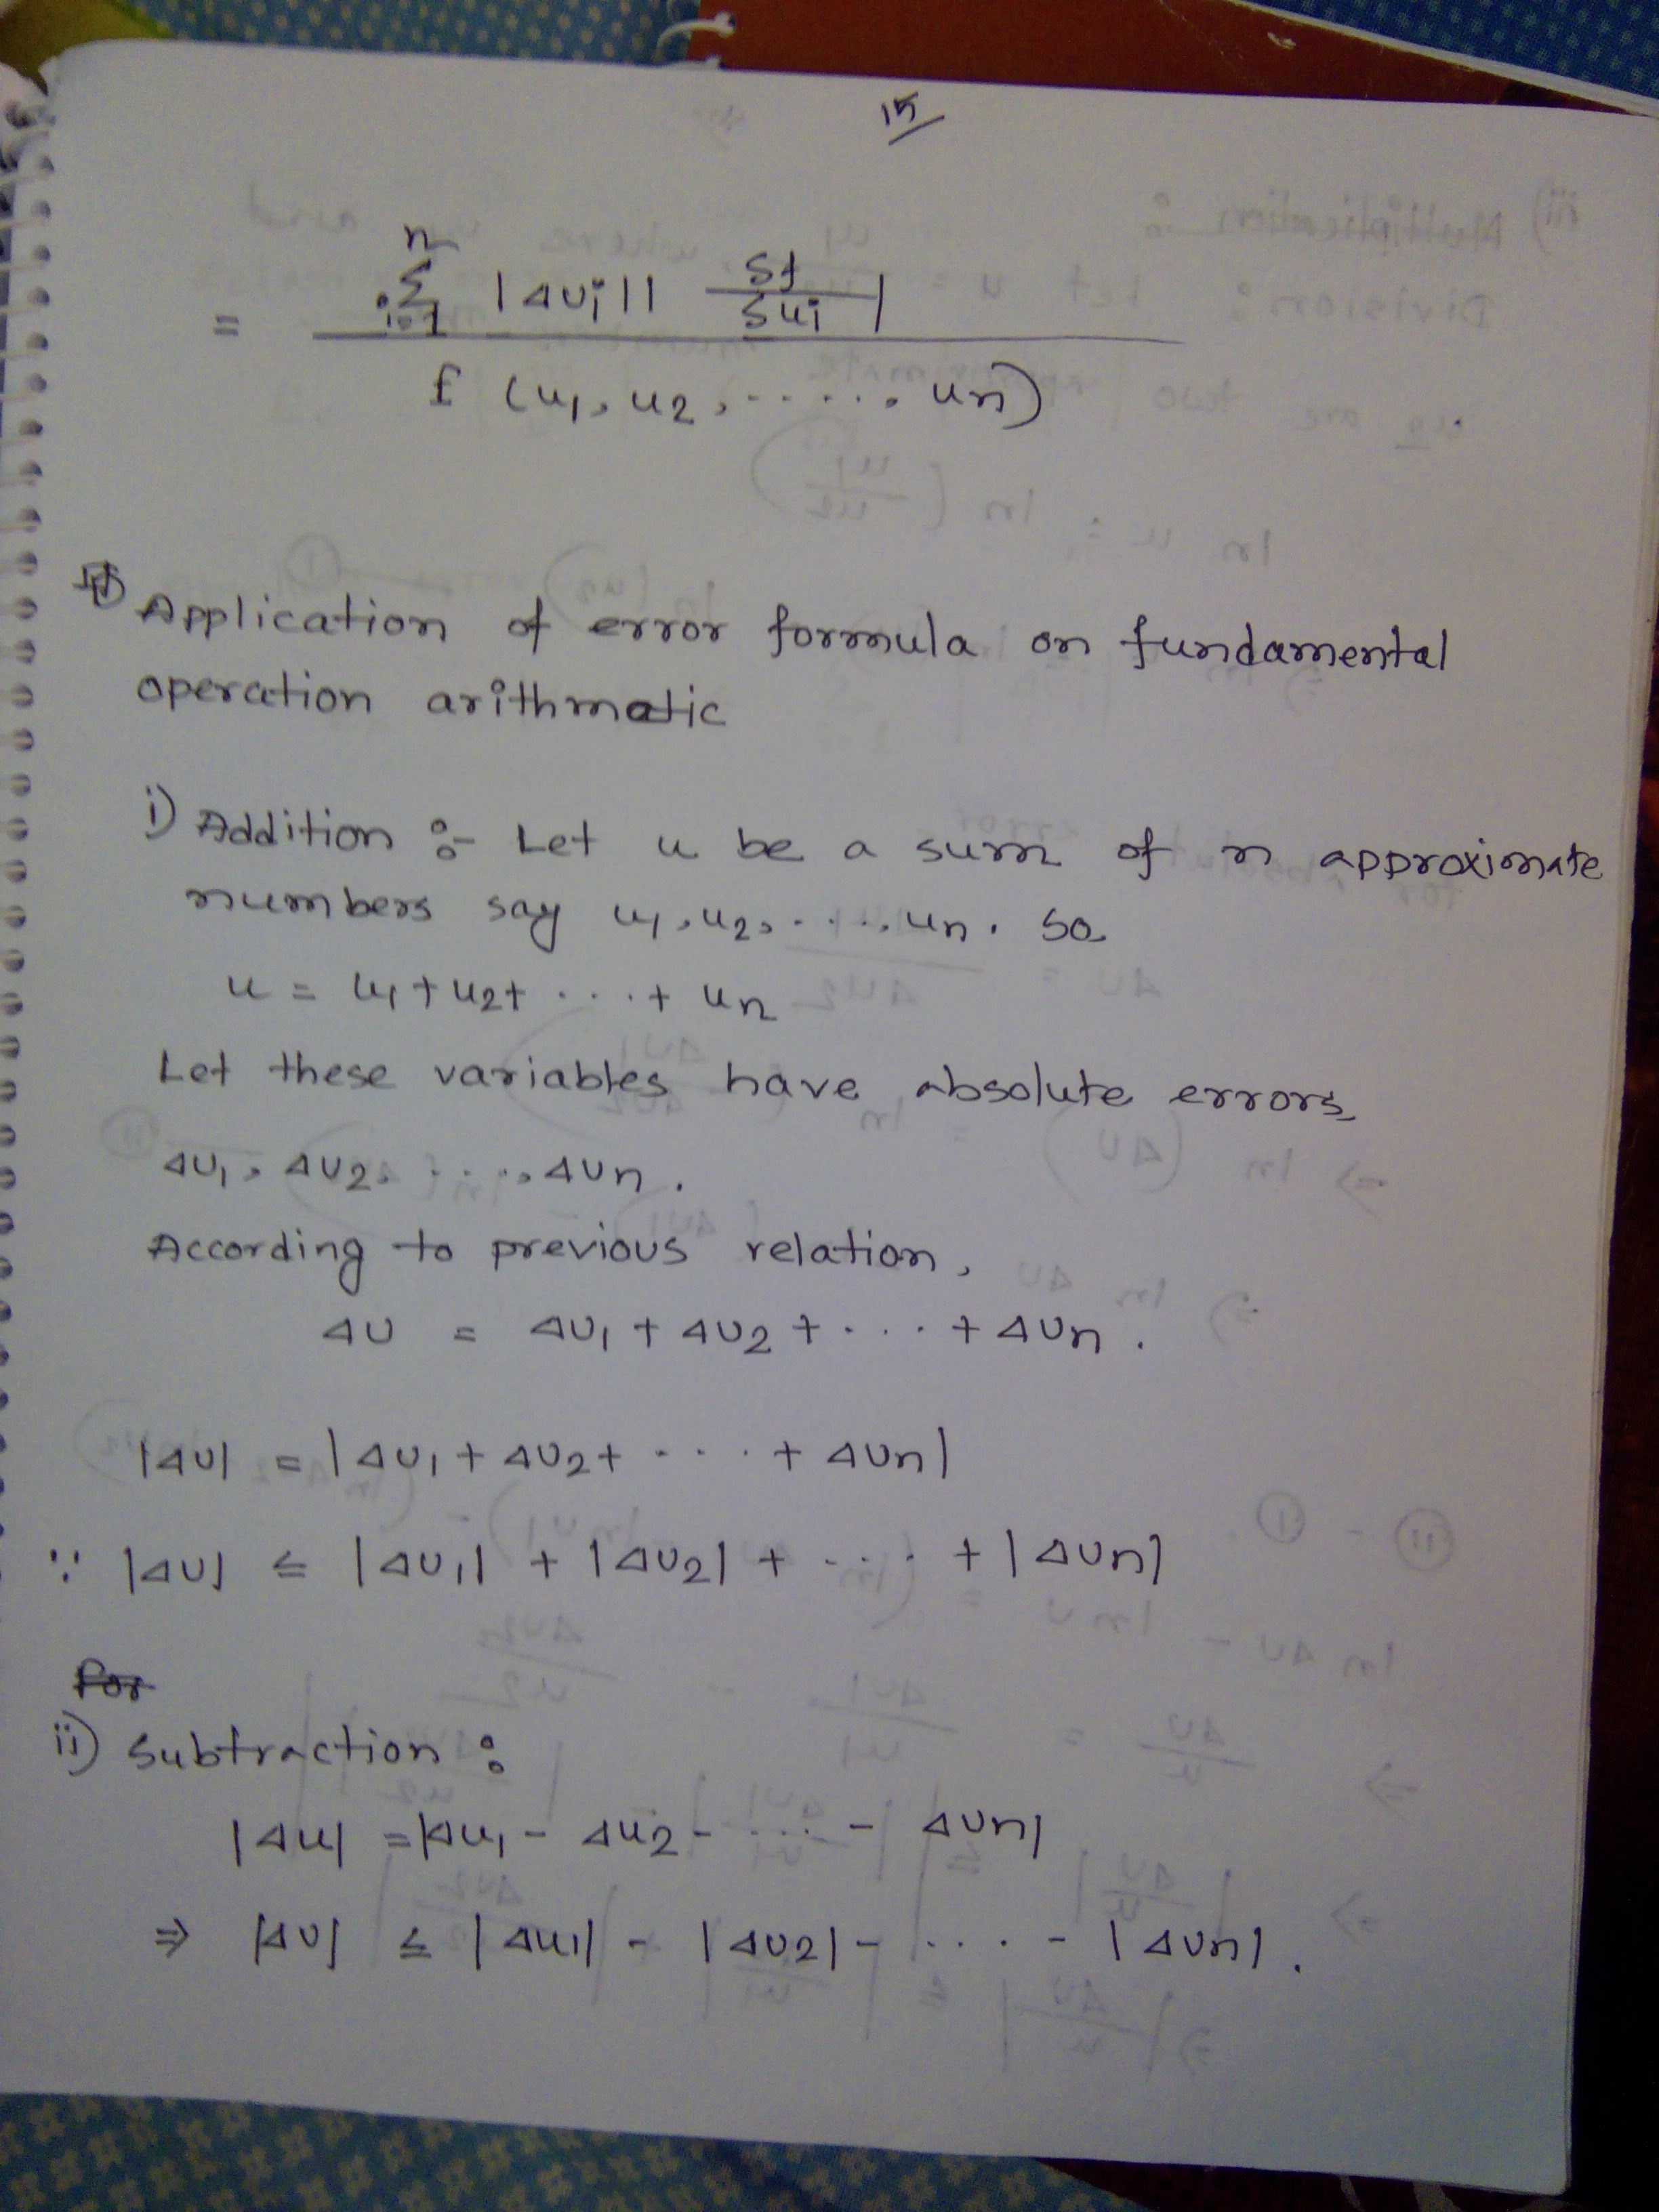 15
n
Σ |Δuᵢ|| δf/δuᵢ |
i=1
=
f (u1, u2, ...... un)
Application of error formula on fundamental
operation arithmatic
i) Addition :- Let u be a sum of n approximate
numbers say u1, u2, ....., un. so
u = u1 + u2 + ....+ un
Let these variables have absolute errors
Δu1, Δu2, ....., Δun.
According to previous relation,
Δu = Δu1 + Δu2 + .... + Δun.
|Δu| = |Δu1 + Δu2 + .... + Δun|
∵ |Δu| ≤ |Δu1| + |Δu2| + .... + |Δun|
For
ii) Subtraction :
|Δu| = |Δu1 - Δu2 - .... - Δun|
⇒ |Δu| ≤ |Δu1| - |Δu2| - .... - |Δun|.